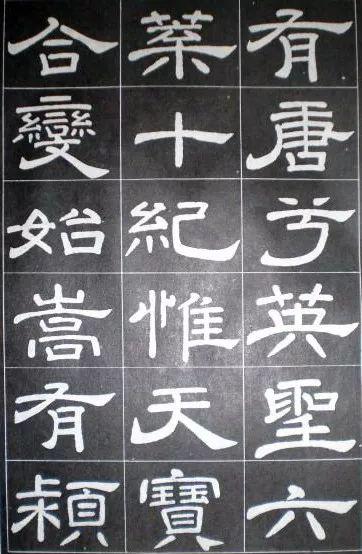 有唐兮英聖六
葉十紀惟天寶
合變始嵩有頴